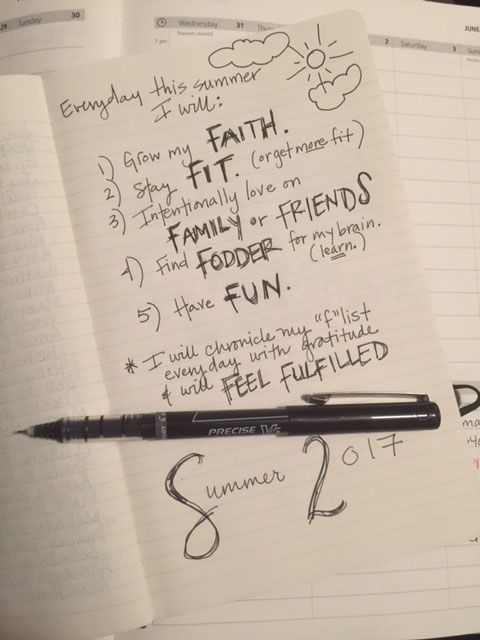 29 Tuesday 30
Wednesday 31
2 Saturday 3
JUNE
7 am
Everyday this summer
I will:
1) Grow my FAITH.
2) Stay FIT. (or get more fit)
3) Intentionally love on
FAMILY or FRIENDS
4) Find FODDER for my brain.
(learn.)
5) Have FUN.
* I will chronicle my "f" list
everyday with gratitude
& will FEEL FULFILLED
PILOT PRECISE V5
Summer 2017